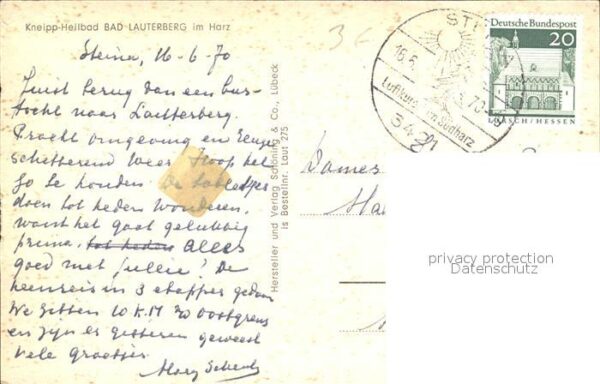 Kneipp-Heilbad BAD LAUTERBERG im Harz
Steina, 16-6-70
Juist terug van een bus-
tocht naar Lauterberg.
Pracht omgeving en
schitterend weer hoop het
zo te houden De tabletjes
doen tot heden wonderen,
want het gaat gelukkig
prima. tot heden Alles
goed met jullie? De
heenreis in 3 etappes gedaan
We zitten 10 K.M v oostgrens
en zijn er gisteren geweest
Vele groetjes
Hersteller und Verlag Schöning & Co., Lübeck
is Bestellnr. Laut 275
36
STEINA
16.6.70
Luftkurort im Südharz
3421
Deutsche Bundespost
20
LORSCH/HESSEN
Dames
privacy protection
Datenschutz